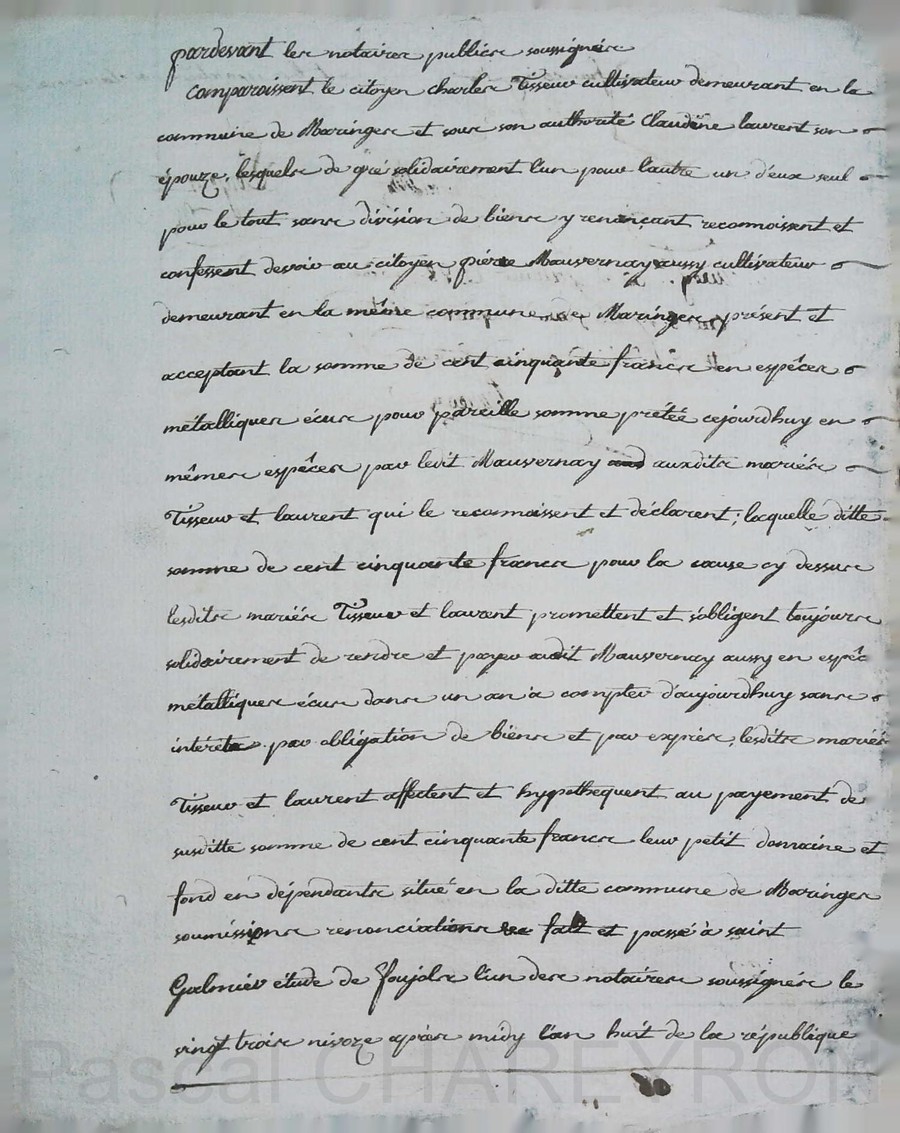 pardevant les notaires publics soussignés
Comparoissent le citoyen charles Tisseur cultivateur demeurant en la
commune de Maringes et sous son authorité Claudine laurent son
épouze, lesquels de gré solidairement l'un pour l'autre un d'eux seul
pour le tout sans division de biens y renonçant reconnoissent et
confessent devoir au citoyen pierre Mauvernay aussy cultivateur
demeurant en la même commune de Maringes, présent et
acceptant la somme de cent cinquante francs en espêces
métalliques écus pour pareille somme prétée cejourdhuy en
mêmes espêces par ledit Mauvernay auxdits mariés
Tisseur et laurent qui le reconnoissent et déclarent; laquelle ditte
somme de cent cinquante francs pour la cause cy dessus
lesdits mariés Tisseur et laurent promettent et s'obligent toujours
solidairement de rendre et payer audit Mauvernay aussy en espêc
métalliques écus dans un an à compter d'aujourdhuy sans
intérets par obligation de biens et par exprès, lesdits mariés
Tisseur et laurent affectent et hypothequent au payement de
susditte somme de cent cinquante francs leur petit domaine et
fond en dépendants situé en la ditte commune de Maringes
soumissions renonciations fait et passé à saint
Galmier étude de foujols l'un des notaires soussignés le
vingt trois nivoze après midy l'an huit de la république
Pascal CHAREYRON